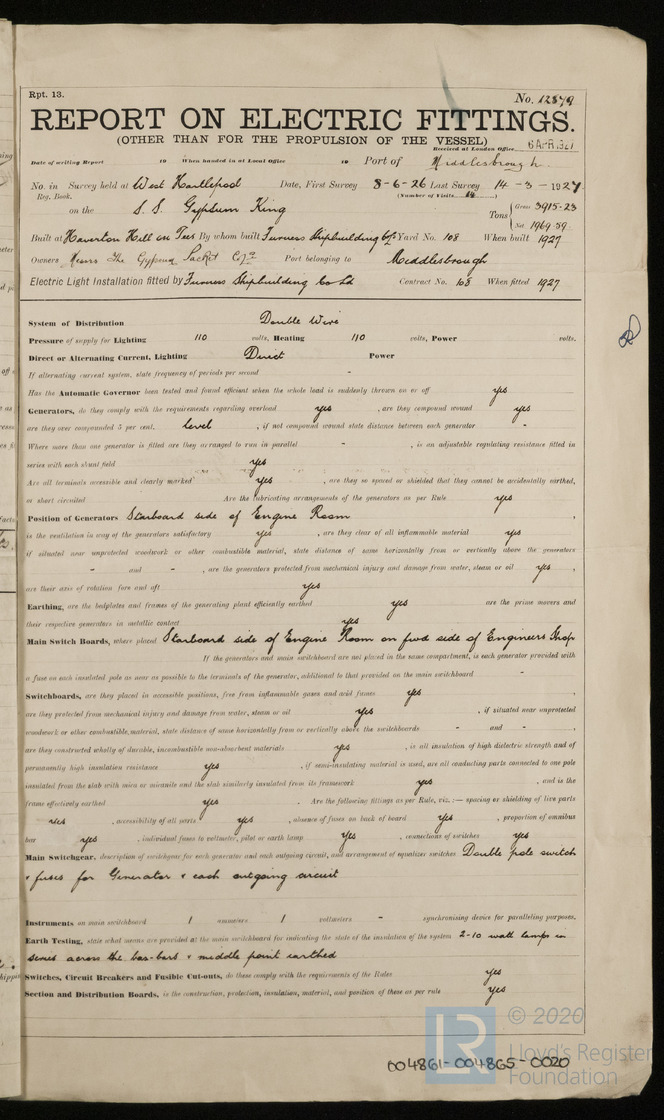 Rpt. 13.
No. 12879
REPORT ON ELECTRIC FITTINGS.
(OTHER THAN FOR THE PROPULSION OF THE VESSEL)
Received at London Office 6 APR 1927
Date of writing Report 19 When handed in at Local Office 19 Port of Middlesbrough
No. in Survey held at West Hartlepool Date, First Survey 8-6-26 Last Survey 14-3-1927
Reg. Book. (Number of Visits 14)
on the S.S. Gypsum King Tons { Gross 3915.23
Net 1969.59
Built at Haverton Hill on Tees By whom built Furness Shipbuilding Co Ltd Yard No. 108 When built 1927
Owners Messrs The Gypsum Packet Co Ld Port belonging to Middlesbrough
Electric Light Installation fitted by Furness Shipbuilding Co Ltd Contract No. 108 When fitted 1927
System of Distribution Double Wire
Pressure of supply for Lighting 110 volts, Heating 110 volts, Power volts.
Direct or Alternating Current, Lighting Direct Power
If alternating current system, state frequency of periods per second -
Has the Automatic Governor been tested and found efficient when the whole load is suddenly thrown on or off yes
Generators, do they comply with the requirements regarding overload yes , are they compound wound yes
are they over compounded 5 per cent. level , if not compound wound state distance between each generator -
Where more than one generator is fitted are they arranged to run in parallel - , is an adjustable regulating resistance fitted in
series with each shunt field yes
Are all terminals accessible and clearly marked yes , are they so spaced or shielded that they cannot be accidentally earthed,
or short circuited Are the lubricating arrangements of the generators as per Rule yes
Position of Generators Starboard side of Engine Room ,
is the ventilation in way of the generators satisfactory yes , are they clear of all inflammable material yes
if situated near unprotected woodwork or other combustible material, state distance of same horizontally from or vertically above the generators
- and - , are the generators protected from mechanical injury and damage from water, steam or oil yes ,
are their axis of rotation fore and aft yes
Earthing, are the bedplates and frames of the generating plant efficiently earthed yes are the prime movers and
their respective generators in metallic contact yes
Main Switch Boards, where placed Starboard side of Engine Room on fwd side of Engineers Shop
If the generators and main switchboard are not placed in the same compartment, is each generator provided with
a fuse on each insulated pole as near as possible to the terminals of the generator, additional to that provided on the main switchboard -
Switchboards, are they placed in accessible positions, free from inflammable gases and acid fumes yes ,
are they protected from mechanical injury and damage from water, steam or oil yes , if situated near unprotected
woodwork or other combustible material, state distance of same horizontally from or vertically above the switchboards - and - ,
are they constructed wholly of durable, incombustible non-absorbent materials yes , is all insulation of high dielectric strength and of
permanently high insulation resistance yes , if semi-insulating material is used, are all conducting parts connected to one pole
insulated from the slab with mica or micanite and the slab similarly insulated from its framework yes , and is the
frame effectively earthed yes . Are the following fittings as per Rule, viz.:— spacing or shielding of live parts
yes , accessibility of all parts yes , absence of fuses on back of board yes , proportion of omnibus
bar yes , individual fuses to voltmeter, pilot or earth lamp yes , connections of switches yes
Main Switchgear, description of switchgear for each generator and each outgoing circuit, and arrangement of equalizer switches Double pole switch
& fuses for Generator & each outgoing circuit
Instruments on main switchboard 1 ammeters 1 voltmeters - synchronising device for paralleling purposes.
Earth Testing, state what means are provided at the main switchboard for indicating the state of the insulation of the system 2-10 watt lamps in
series across the bus-bars & middle point earthed
Switches, Circuit Breakers and Fusible Cut-outs, do these comply with the requirements of the Rules yes
Section and Distribution Boards, is the construction, protection, insulation, material, and position of these as per rule yes
© 2020
Lloyd's Register
Foundation
004861-004865-0020